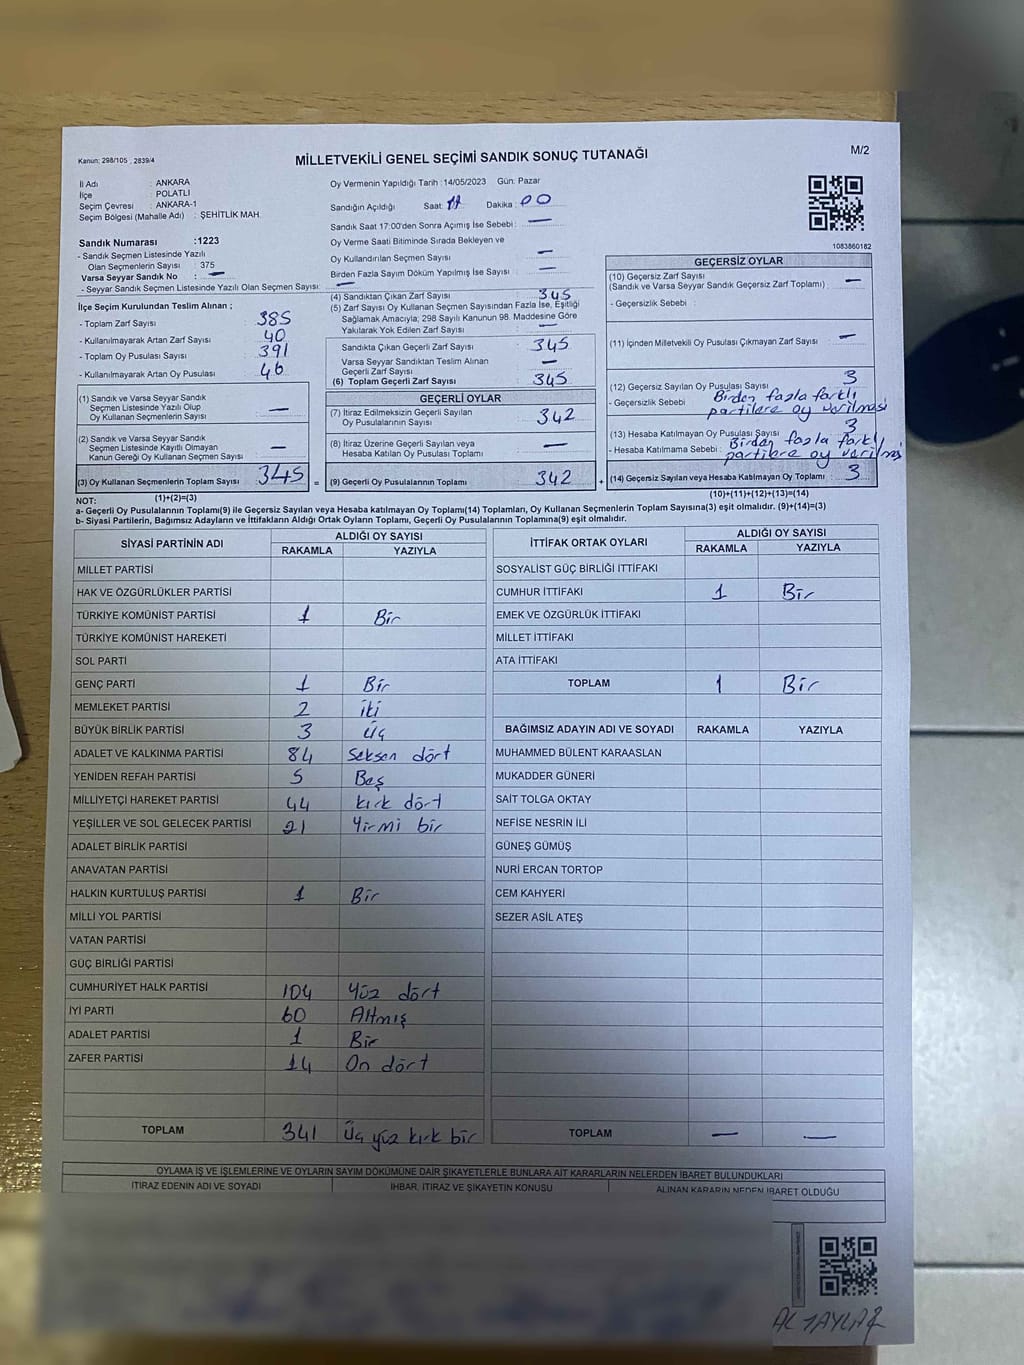 Kanun: 298/105 , 2839/4
MİLLETVEKİLİ GENEL SEÇİMİ SANDIK SONUÇ TUTANAĞI
M/2
İl Adı : ANKARA
İlçe : POLATLI
Seçim Çevresi : ANKARA-1
Seçim Bölgesi (Mahalle Adı) : ŞEHİTLİK MAH.
Oy Vermenin Yapıldığı Tarih :14/05/2023 Gün: Pazar
Sandığın Açıldığı Saat: Dakika : 00
Sandık Saat 17:00'den Sonra Açımış İse Sebebi : —
Oy Verme Saati Bitiminde Sırada Bekleyen ve
Oy Kullandırılan Seçmen Sayısı : —
Birden Fazla Sayım Döküm Yapılmış İse Sayısı : —
1083860182
Sandık Numarası :1223
- Sandık Seçmen Listesinde Yazılı
Olan Seçmenlerin Sayısı : 375
Varsa Seyyar Sandık No : —
- Seyyar Sandık Seçmen Listesinde Yazılı Olan Seçmen Sayısı: —
İlçe Seçim Kurulundan Teslim Alınan ;
- Toplam Zarf Sayısı : 385
- Kullanılmayarak Artan Zarf Sayısı : 40
- Toplam Oy Pusulası Sayısı : 391
- Kullanılmayarak Artan Oy Pusulası : 46
(1) Sandık ve Varsa Seyyar Sandık
Seçmen Listesinde Yazılı Olup
Oy Kullanan Seçmenlerin Sayısı : —
(2) Sandık ve Varsa Seyyar Sandık
Seçmen Listesinde Kayıtlı Olmayan
Kanun Gereği Oy Kullanan Seçmen Sayısı : —
(3) Oy Kullanan Seçmenlerin Toplam Sayısı : 345 =
(4) Sandıktan Çıkan Zarf Sayısı : 345
(5) Zarf Sayısı Oy Kullanan Seçmen Sayısından Fazla İse, Eşitliği
Sağlamak Amacıyla; 298 Sayılı Kanunun 98. Maddesine Göre
Yakılarak Yok Edilen Zarf Sayısı : —
Sandıkta Çıkan Geçerli Zarf Sayısı : 345
Varsa Seyyar Sandıktan Teslim Alınan
Geçerli Zarf Sayısı : —
(6) Toplam Geçerli Zarf Sayısı : 345
GEÇERLİ OYLAR
(7) İtiraz Edilmeksizin Geçerli Sayılan
Oy Pusulasının Sayısı : 342
(8) İtiraz Üzerine Geçerli Sayılan veya
Hesaba Katılan Oy Pusulası Toplamı : —
(9) Geçerli Oy Pusulalarının Toplamı : 342 +
GEÇERSİZ OYLAR
(10) Geçersiz Zarf Sayısı : —
(Sandık ve Varsa Seyyar Sandık Geçersiz Zarf Toplamı)
- Geçersizlik Sebebi :
(11) İçinden Milletvekili Oy Pusulası Çıkmayan Zarf Sayısı : —
(12) Geçersiz Sayılan Oy Pusulası Sayısı : 3
- Geçersizlik Sebebi : Birden fazla farklı
partilere oy verilmesi
(13) Hesaba Katılmayan Oy Pusulası Sayısı : 3
- Hesaba Katılmama Sebebi : Birden fazla farklı
partilere oy
(14) Geçersiz Sayılan veya Hesaba Katılmayan Oy Toplamı : 3
NOT: (1)+(2)=(3)
(10)+(11)+(12)+(13)=(14)
a- Geçerli Oy Pusulalarının Toplamı(9) ile Geçersiz Sayılan veya Hesaba katılmayan Oy Toplamı(14) Toplamları, Oy Kullanan Seçmenlerin Toplam Sayısına(3) eşit olmalıdır. (9)+(14)=(3)
b- Siyasi Partilerin, Bağımsız Adayların ve İttifakların Aldığı Ortak Oyların Toplamı, Geçerli Oy Pusulalarının Toplamına(9) eşit olmalıdır.
SİYASİ PARTİNİN ADI ALDIĞI OY SAYISI
RAKAMLA YAZIYLA
MİLLET PARTİSİ
HAK VE ÖZGÜRLÜKLER PARTİSİ
TÜRKİYE KOMÜNİST PARTİSİ 1 Bir
TÜRKİYE KOMÜNİST HAREKETİ
SOL PARTİ
GENÇ PARTİ 1 Bir
MEMLEKET PARTİSİ 2 iki
BÜYÜK BİRLİK PARTİSİ 3 Üç
ADALET VE KALKINMA PARTİSİ 84 Seksen dört
YENİDEN REFAH PARTİSİ 5 Beş
MİLLİYETÇİ HAREKET PARTİSİ 44 kırk dört
YEŞİLLER VE SOL GELECEK PARTİSİ 21 Yirmi bir
ADALET BİRLİK PARTİSİ
ANAVATAN PARTİSİ
HALKIN KURTULUŞ PARTİSİ 1 Bir
MİLLİ YOL PARTİSİ
VATAN PARTİSİ
GÜÇ BİRLİĞİ PARTİSİ
CUMHURİYET HALK PARTİSİ 104 Yüz dört
İYİ PARTİ 60 Altmış
ADALET PARTİSİ 1 Bir
ZAFER PARTİSİ 14 On dört
TOPLAM 341 Üç yüz kırk bir
İTTİFAK ORTAK OYLARI ALDIĞI OY SAYISI
RAKAMLA YAZIYLA
SOSYALİST GÜÇ BİRLİĞİ İTTİFAKI
CUMHUR İTTİFAKI 1 Bir
EMEK VE ÖZGÜRLÜK İTTİFAKI
MİLLET İTTİFAKI
ATA İTTİFAKI
TOPLAM 1 Bir
BAĞIMSIZ ADAYIN ADI VE SOYADI RAKAMLA YAZIYLA
MUHAMMED BÜLENT KARAASLAN
MUKADDER GÜNERİ
SAİT TOLGA OKTAY
NEFİSE NESRİN İLİ
GÜNEŞ GÜMÜŞ
NURİ ERCAN TORTOP
CEM KAHYERİ
SEZER ASİL ATEŞ
TOPLAM — —
OYLAMA İŞ VE İŞLEMLERİNE VE OYLARIN SAYIM DÖKÜMÜNE DAİR ŞİKAYETLERLE BUNLARA AİT KARARLARIN NELERDEN İBARET BULUNDUKLARI
İTİRAZ EDENİN ADI VE SOYADI İHBAR, İTİRAZ VE ŞİKAYETİN KONUSU ALINAN KARARIN NEDEN İBARET OLDUĞU